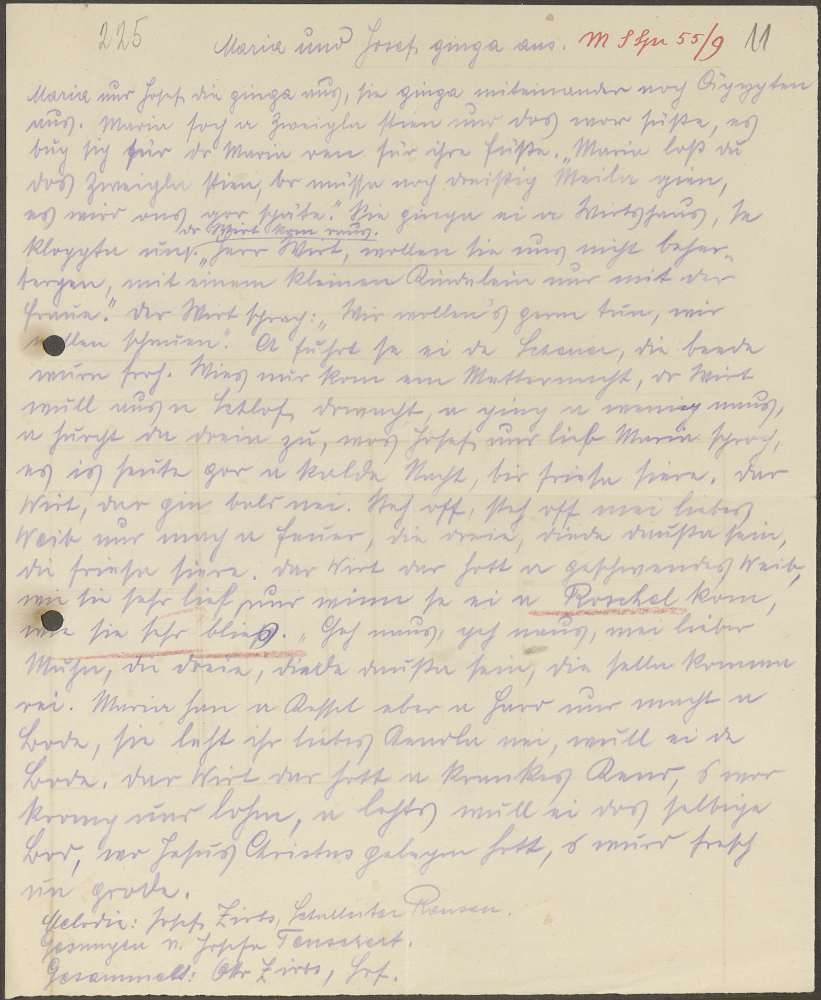 225 Maria und Josef ginga aus. M Schr 55/9 11
Maria und Josef die ginga aus, sie ginga miteinander noch Ägypten
aus. Maria soch a Zweigla stien und dos wor süße, es
bug sich für dr Maria ren für ihre Füße. „Maria loß du
dos Zweigla stien, br müssa noch dreißig Meila gien,
es wird ons gor späte." Sie ginga ei a Wirtshaus, se
dr Wirt kom raus.
kloppta uns. „Herr Wirt, wollen sie uns nicht beher-
bergen, mit einem kleinen Kindelein und mit der
Fraue." Der Wirt sprach: „Wir wollen's gern tun, wir
wollen schauen." A fuhrt se ei de Scheuer, die beede
wurn froh. Wies nur kom em Metternacht, dr Wirt
wull aus n Schlof drwacht, a ging a wenig naus,
a hurcht da drein zu, wos Josef und lieb Maria sproch,
es is heute gor a kalde Nacht, bir friesa siere. Dar
Wirt, dar gin bals nei. Steh off, steh off mei liebes
Weib und mach a Feuer, die dreie, diede daußa sein,
die friesa siere. Dar Wirt dar hott a geschwendes Weib,
wie sie sehr lief, und wenn se ei a Roschel kom,
wie sie sehr blies. „Geh naus, geh naus, mei lieber
Muhn, die dreie, diede daußa sein, die solla komma
rei. Maria han a Kessel eber a Hard und macht a
Bode, sie leht ihr liebes Kendla nei, wull ei de
Bode. Dar Wirt dar hott a krankes Kend, s wor
kromp und lohm, a lehts wull ei dos selbige
Bod, wo Jesus Christus gelegen hott, s wurd fresch
un grode.
Melodie: Josef Zirbs, Schulleiter
Gesungen v. Josefa
Gesammelt: Zirbs,